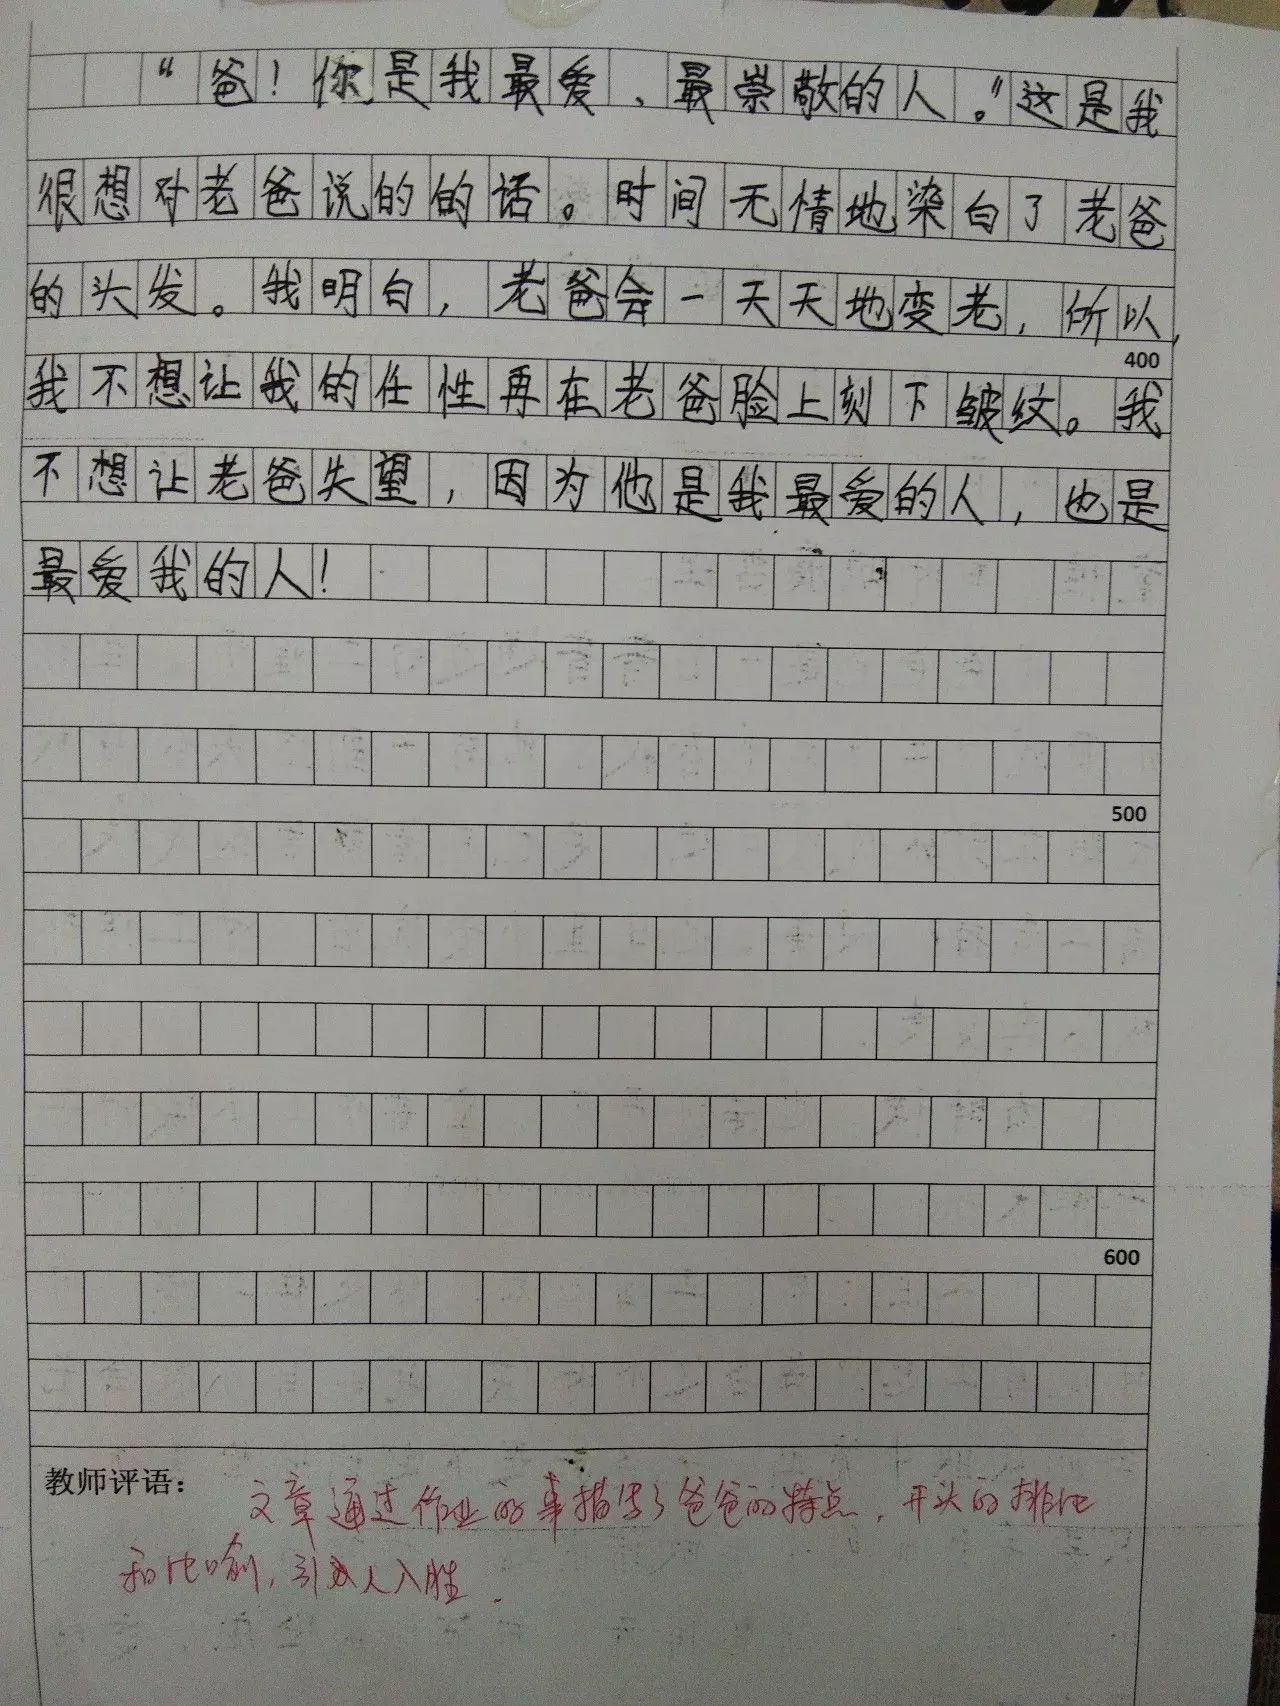 “爸！你是我最爱、最崇敬的人。”这是我
很想对老爸说的的话。时间无情地染白了老爸
的头发。我明白，老爸会一天天地变老，所以，
400
我不想让我的任性再在老爸脸上刻下皱纹。我
不想让老爸失望，因为他是我最爱的人，也是
最爱我的人！
500
600
教师评语： 文章通过作业的事描写了爸爸的特点，开头的排比
和比喻，引人入胜.